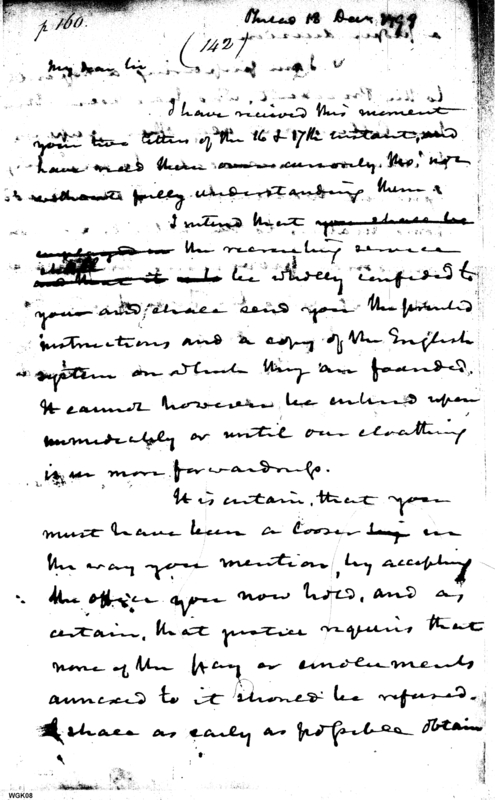 p 160.
Philad 18 Decr 1799
(142)
My dear Sir
I have received this moment
your two letters of the 16 & 17th instant, and
have read them cursorily, tho' not
without fully understanding them.
I intend that you shall be
employed in the recruiting service
shall
and that it be wholly confided to
you and shall send you the printed
instructions and a copy of the English
system on which they are founded.
It cannot however be entered upon
immediately or until our cloathing
is in more forwardness.
It is certain, that you
must have been a looser in
the way you mention, by accepting
the office you now hold, and as
certain, that justice requires that
none of the pay or emoluments
annexed to it should be refused.
I shall as early as possible obtain
WGK08